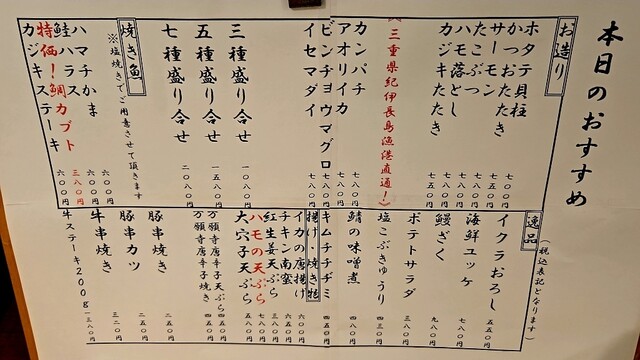 本日のおすすめ
(税込表記となります)
お造り
ホタテ貝柱 七〇〇円
かつおたたき
サーモン
たこぶつ
ハモ落とし
カジキたたき
《三重県紀伊長島漁港直通!》
カンパチ 七八〇円
アオリイカ 七八〇円
ビンチョウマグロ 七八〇円
イセマダイ 七八〇円
三種盛り合せ 一〇八〇円
五種盛り合せ 一五八〇円
七種盛り合せ 二〇八〇円
焼き魚
※塩焼きでご用意させて頂きます
ハマチかま 六〇〇円
鮭ハラス 六〇〇円
特価!鯛カブト 三八〇円
カジキステーキ 六〇〇円
逸品
イクラおろし 五五〇円
海鮮ユッケ 七八〇円
鰻ざく 九八〇円
ポテトサラダ 三八〇円
塩こぶきゅうり 四三〇円
鯖の味噌煮 四八〇円
キムチチヂミ 四五〇円
揚げ・焼き物
イカの唐揚げ 六〇〇円
チキン南蛮 六五〇円
紅生姜天ぷら 三八〇円
ハモの天ぷら 七八〇円
大穴子天ぷら 五八〇円
万願寺唐辛子天ぷら 四五〇円
万願寺唐辛子焼き 四五〇円
豚串焼き 二五〇円
豚串カツ 二五〇円
牛串焼き 三二〇円
牛ステーキ200g 一三八〇円